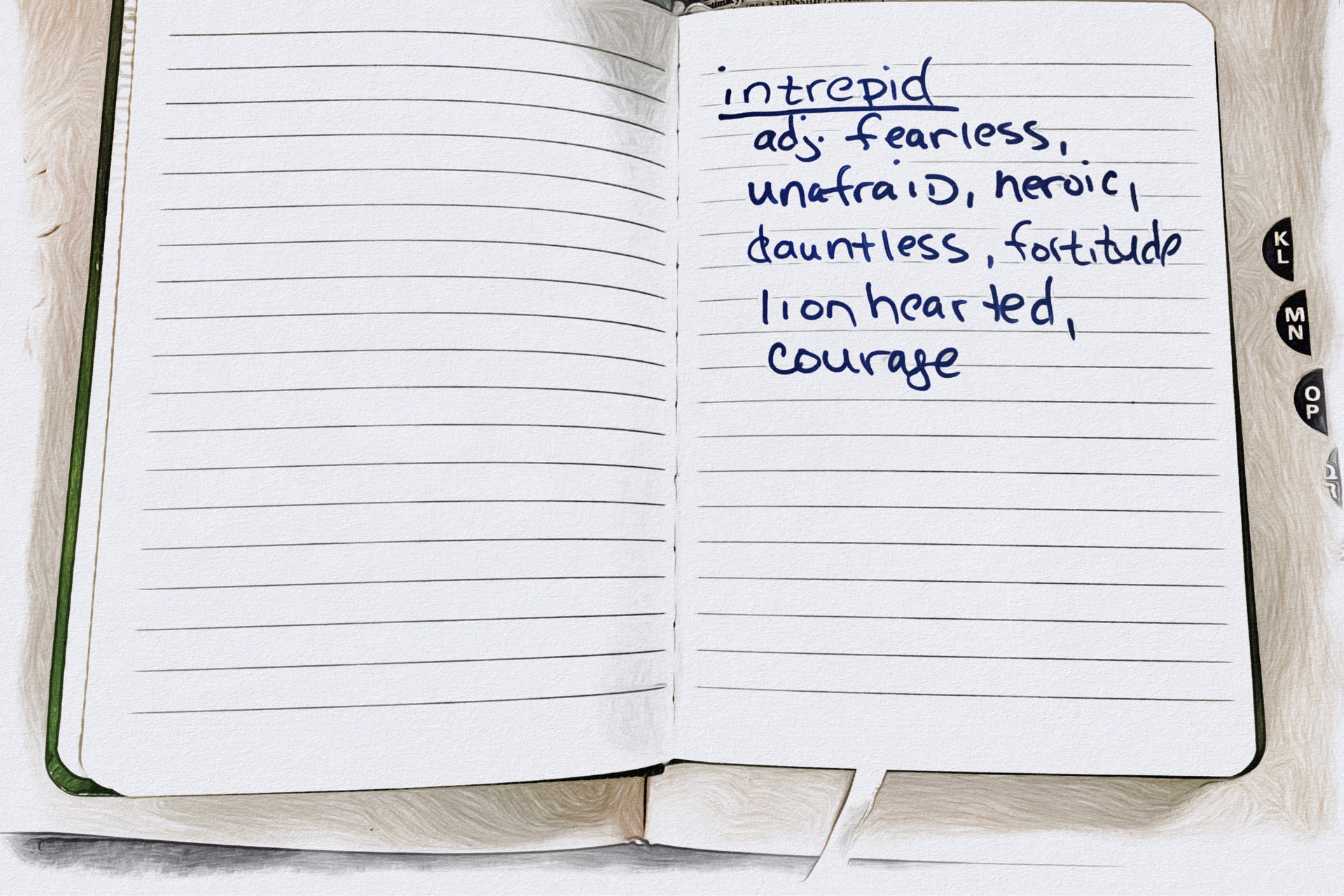 intrepid
adj. fearless,
unafraid, heroic,
dauntless, fortitude
lion hearted,
courage
K
L
M
N
O
P